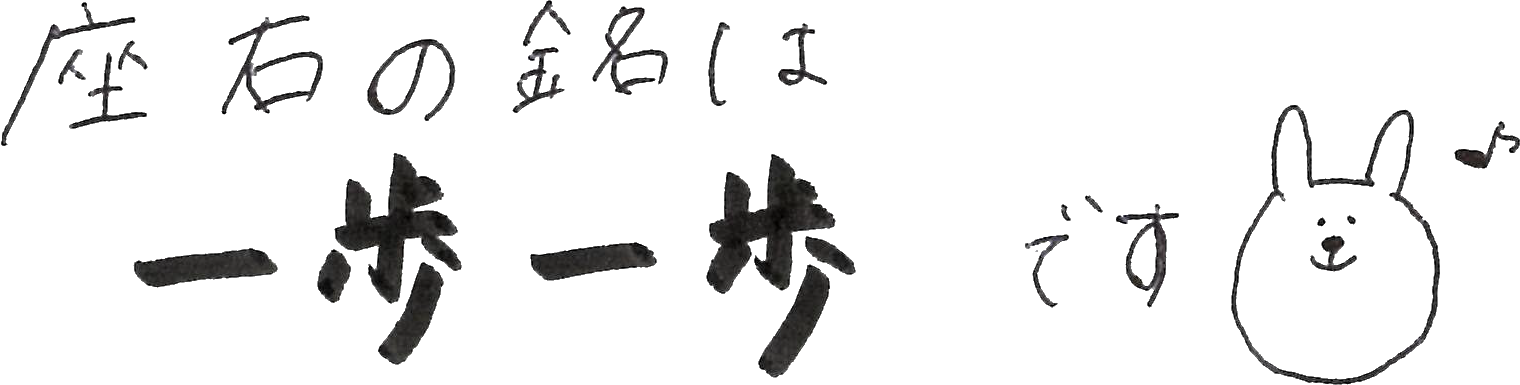 座右の銘は
一歩一歩です